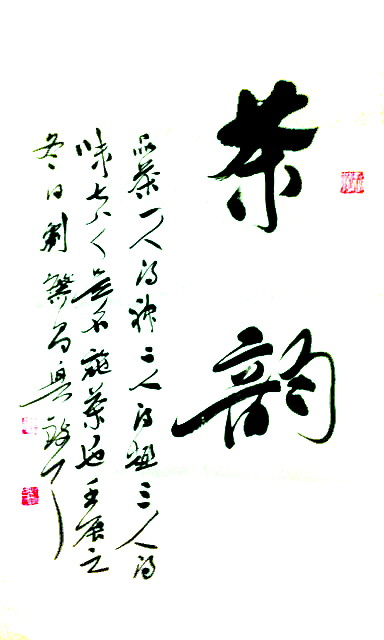 茶韵
品茶一人得神二人得趣三人得
味七八人是名施茶也壬辰之
冬日刘